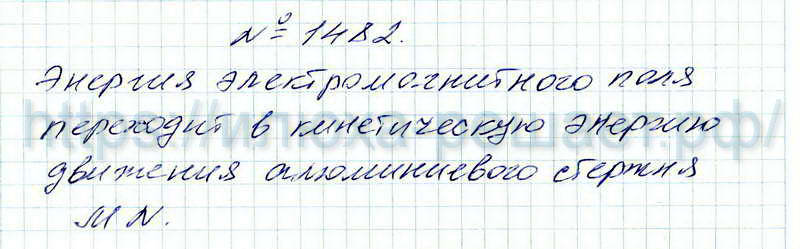 № 1482.
Энергия электромагнитного поля
переходит в кинетическую энергию
движения алюминиевого стержня
MN.